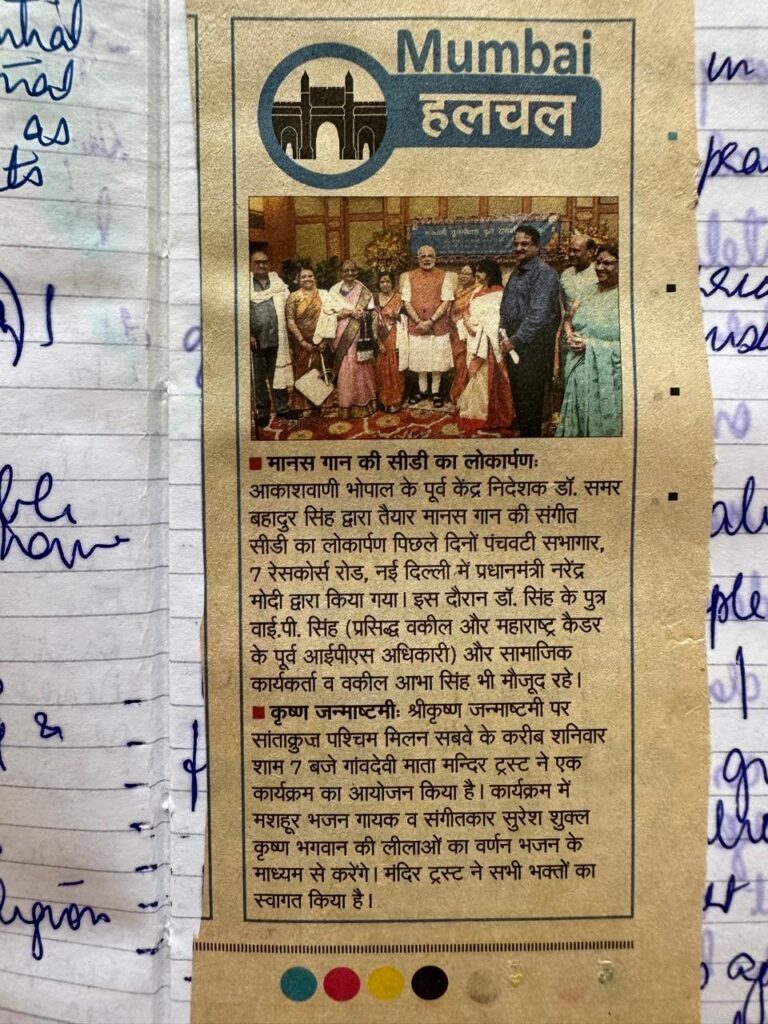 Mumbai
हलचल
मानस गान की सीडी का लोकार्पणः
आकाशवाणी भोपाल के पूर्व केंद्र निदेशक डॉ. समर
बहादुर सिंह द्वारा तैयार मानस गान की संगीत
सीडी का लोकार्पण पिछले दिनों पंचवटी सभागार,
7 रेसकोर्स रोड, नई दिल्ली में प्रधानमंत्री नरेंद्र
मोदी द्वारा किया गया। इस दौरान डॉ. सिंह के पुत्र
वाई.पी. सिंह (प्रसिद्ध वकील और महाराष्ट्र कैडर
के पूर्व आईपीएस अधिकारी) और सामाजिक
कार्यकर्ता व वकील आभा सिंह भी मौजूद रहे।
कृष्ण जन्माष्टमीः श्रीकृष्ण जन्माष्टमी पर
सांताक्रुज पश्चिम मिलन सबवे के करीब शनिवार
शाम 7 बजे गांवदेवी माता मन्दिर ट्रस्ट ने एक
कार्यक्रम का आयोजन किया है। कार्यक्रम में
मशहूर भजन गायक व संगीतकार सुरेश शुक्ल
कृष्ण भगवान की लीलाओं का वर्णन भजन के
माध्यम से करेंगे। मंदिर ट्रस्ट ने सभी भक्तों का
स्वागत किया है।
as
&
in